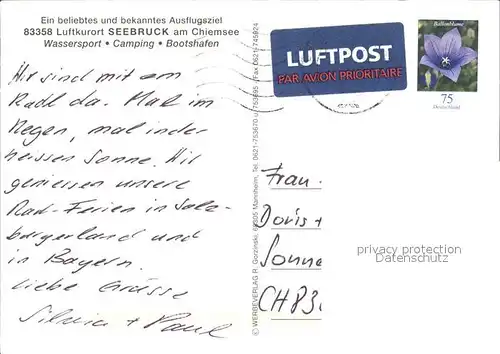 Ein beliebtes und bekanntes Ausflugsziel
83358 Luftkurort SEEBRUCK am Chiemsee
Wassersport • Camping • Bootshafen
Wir sind mit dem
Radl da. Mal im
Regen, mal in der
heissen Sonne. Wir
geniessen unsere
Rad-Ferien in Salz-
burgerland und
in Bayern.
Liebe Grüsse
Silvia + Paul
© WERBEVERLAG R. Gorzinski, 68305 Mannheim, Tel. 0621-753670 u. 753695, Fax 0621-745924
LUFTPOST
PAR AVION PRIORITAIRE
Ballonblume
75
Deutschland
Frau
Doris +
Sonne
CH 83
privacy protection
Datenschutz